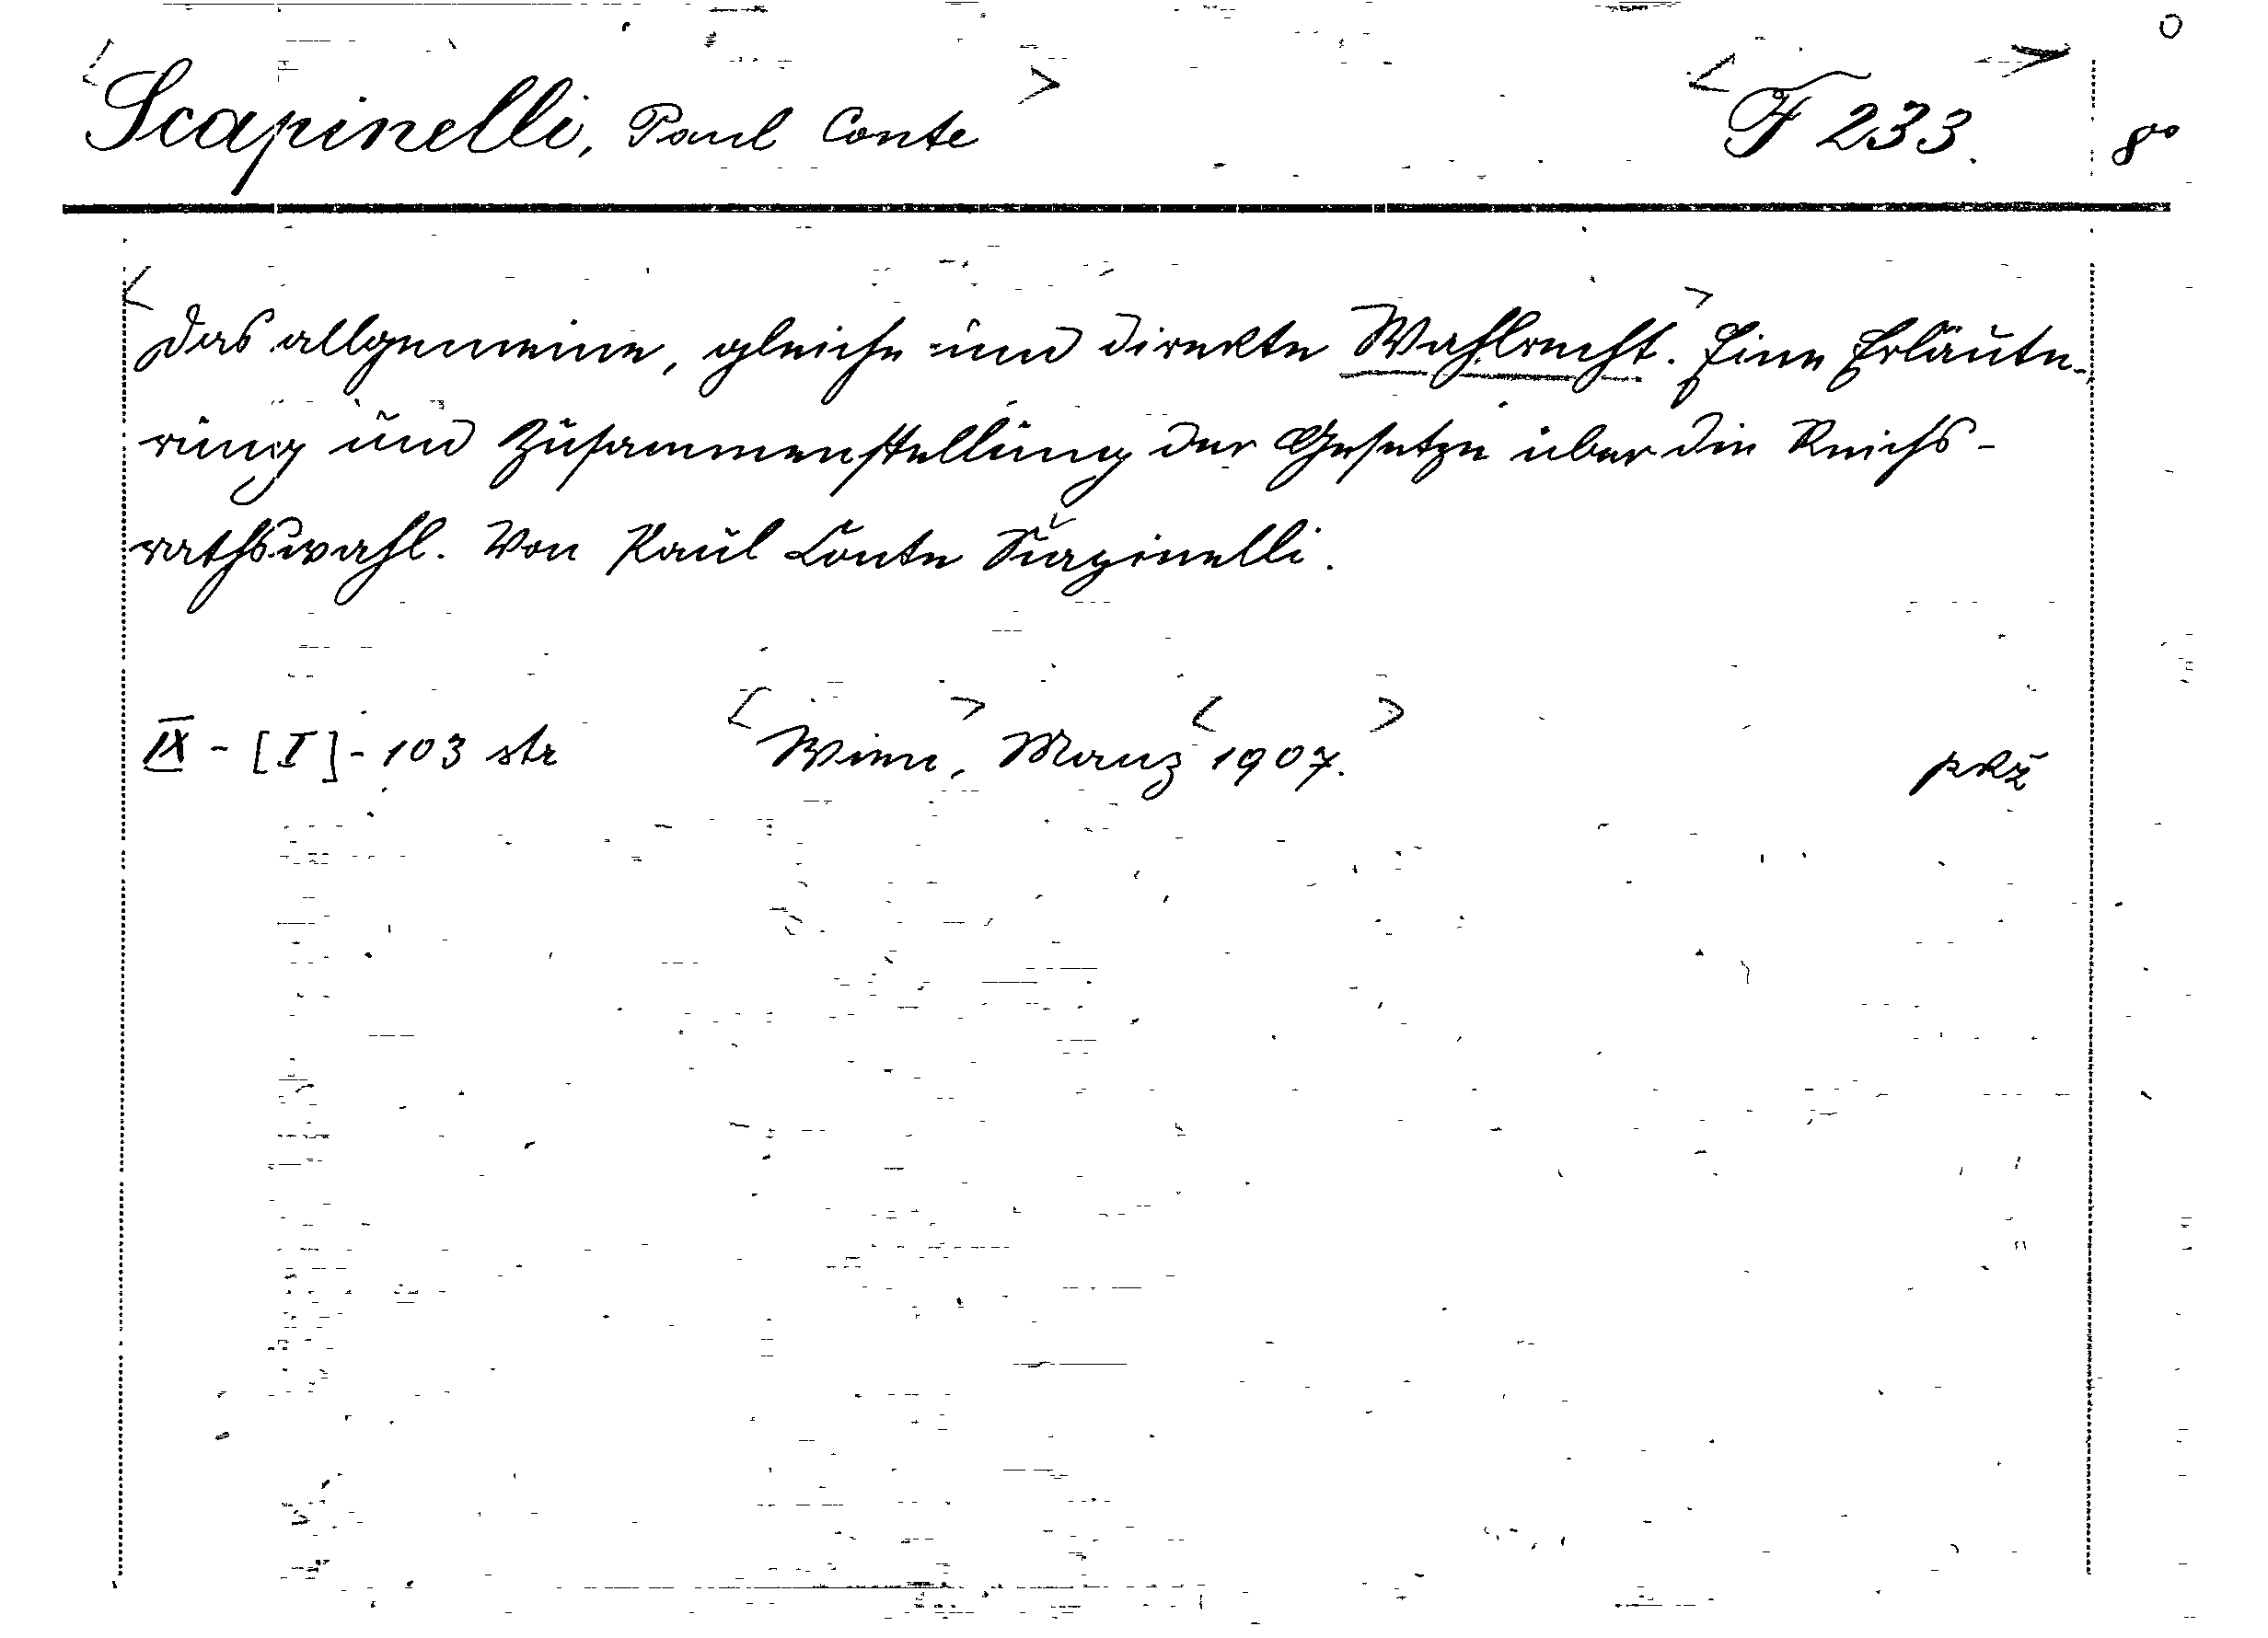 Scapinelli, Paul Conte F 233. 8°
Das allgemeine, gleiche und direkte Wahlrecht. Eine Erläute-
rung und Zusammenstellung der Gesetze über die Reichs-
rathswahl. Von Paul Conte Scapinelli.
IX - [I] - 103 str Wien, Manz 1907. pkž